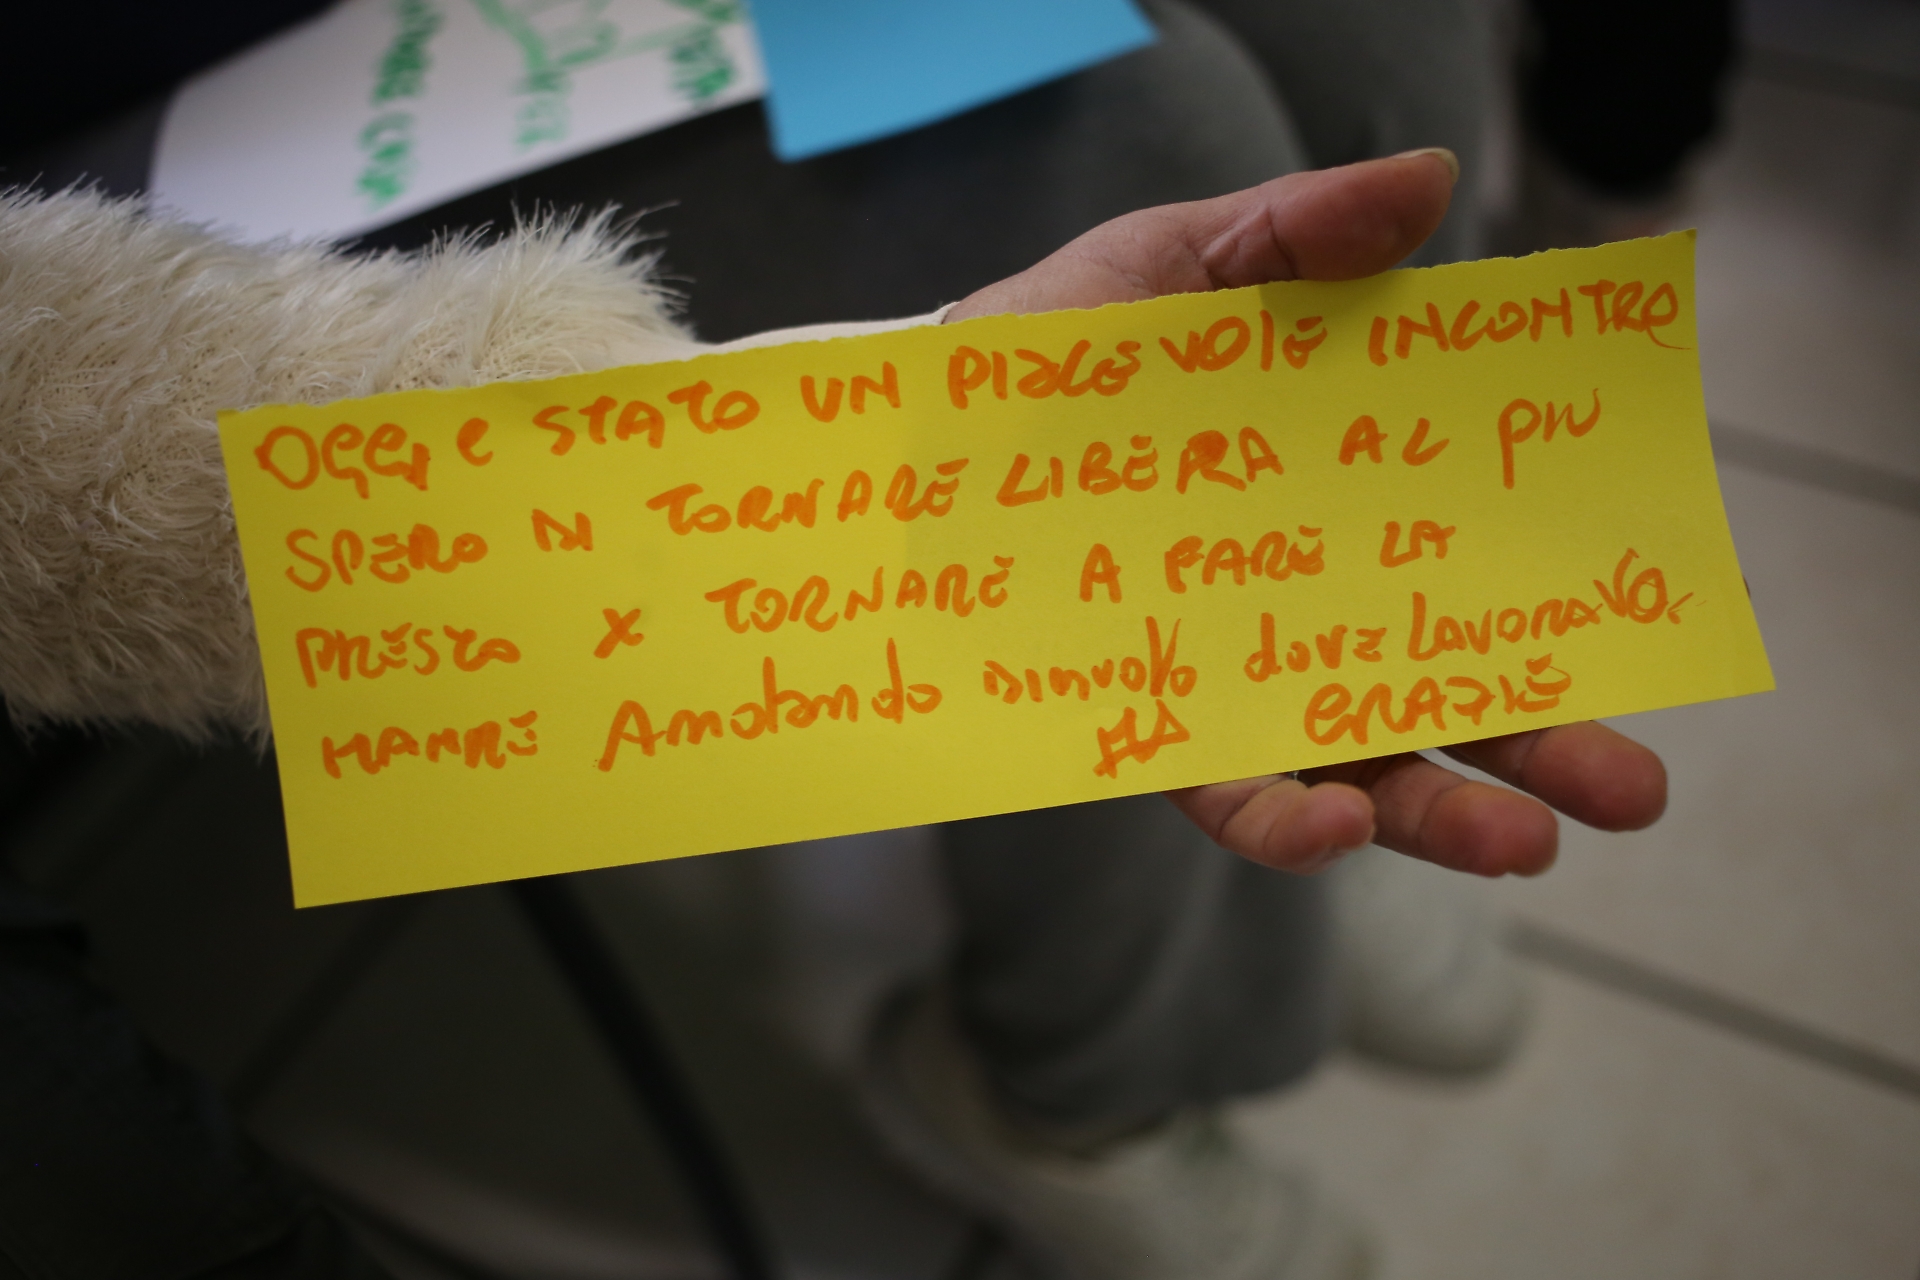 OGGI e STATO UN PIACEVOLE INCONTRO
SPERO DI TORNARE LIBERA AL PIU
PRESTO X TORNARE A FARE LA
MAMRE Anotando dove LavoraVo.
GRAZIE